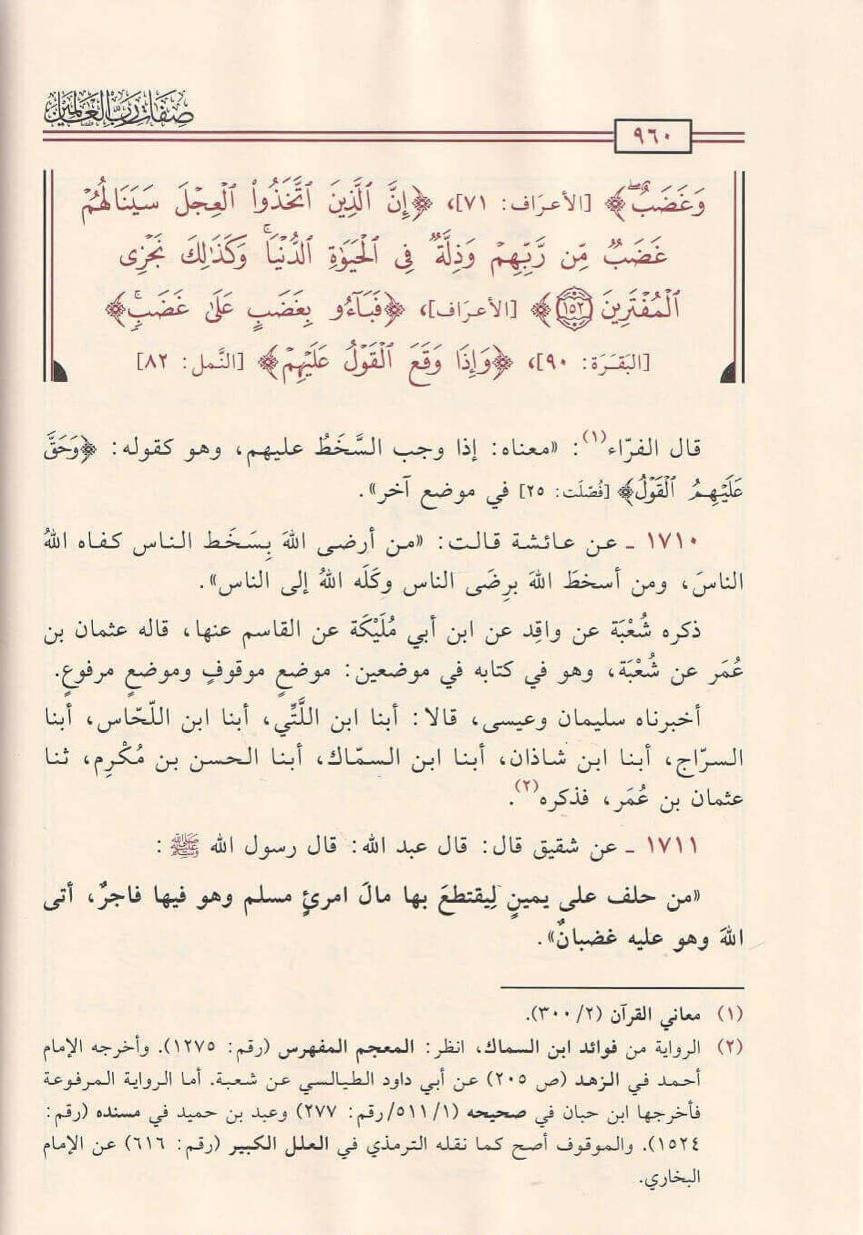 صفات رب العالمين
٩٦٠
وَغَضَبٌۖ﴾ [الأعرَاف: ٧١]، ﴿إِنَّ ٱلَّذِينَ ٱتَّخَذُواْ ٱلْعِجْلَ سَيَنَالُهُمْ
غَضَبٌ مِّن رَّبِّهِمْ وَذِلَّةٌ فِى ٱلْحَيَوٰةِ ٱلدُّنْيَاۚ وَكَذَٰلِكَ نَجْزِى
ٱلْمُفْتَرِينَ ١٥٢﴾ [الأعرَاف]، ﴿فَبَآءُو بِغَضَبٍ عَلَىٰ غَضَبٍۚ﴾
[البَقَرَة: ٩٠]، ﴿وَإِذَا وَقَعَ ٱلْقَوْلُ عَلَيْهِمْ﴾ [النَّمل: ٨٢]
قال الفرّاء(١): «معناه: إذا وجب السَّخَطُ عليهم، وهو كقوله: ﴿وَحَقَّ
عَلَيْهِمُ ٱلْقَوْلُ﴾ [فُصّلَت: ٢٥] في موضع آخر».
١٧١٠ ـ عن عائشة قالت: «من أرضى اللهَ بِسَخَط الناس كفاه اللهُ
الناسَ، ومن أسخطَ اللهَ برِضَى الناس وكَلَه اللهُ إلى الناس».
ذكره شُعْبَة عن واقِد عن ابن أبي مُلَيْكَة عن القاسم عنها، قاله عثمان بن
عُمَر عن شُعْبَة، وهو في كتابه في موضعين: موضعٍ موقوفٍ وموضعٍ مرفوعٍ.
أخبرناه سليمان وعيسى، قالا: أبنا ابن اللَّتِّي، أبنا ابن اللّحّاس، أبنا
السرّاج، أبنا ابن شاذان، أبنا ابن السمّاك، أبنا الحسن بن مُكْرِم، ثنا
عثمان بن عُمَر، فذكره(٢).
١٧١١ ـ عن شقيق قال: قال عبد الله: قال رسول الله ﷺ:
«من حلف على يمينٍ لِيقتطعَ بها مالَ امرئٍ مسلم وهو فيها فاجرٌ، أتى
اللهَ وهو عليه غضبانٌ».
(١) معاني القرآن (٣٠٠/٢).
(٢) الرواية من فوائد ابن السماك، انظر: المعجم المفهرس (رقم: ١٢٧٥). وأخرجه الإمام
أحمد في الزهد (ص ٢٠٥) عن أبي داود الطيالسي عن شعبة. أما الرواية المرفوعة
فأخرجها ابن حبان في صحيحه (٥١١/١/رقم: ٢٧٧) وعبد بن حميد في مسنده (رقم:
١٥٢٤). والموقوف أصح كما نقله الترمذي في العلل الكبير (رقم: ٦١٦) عن الإمام
البخاري.